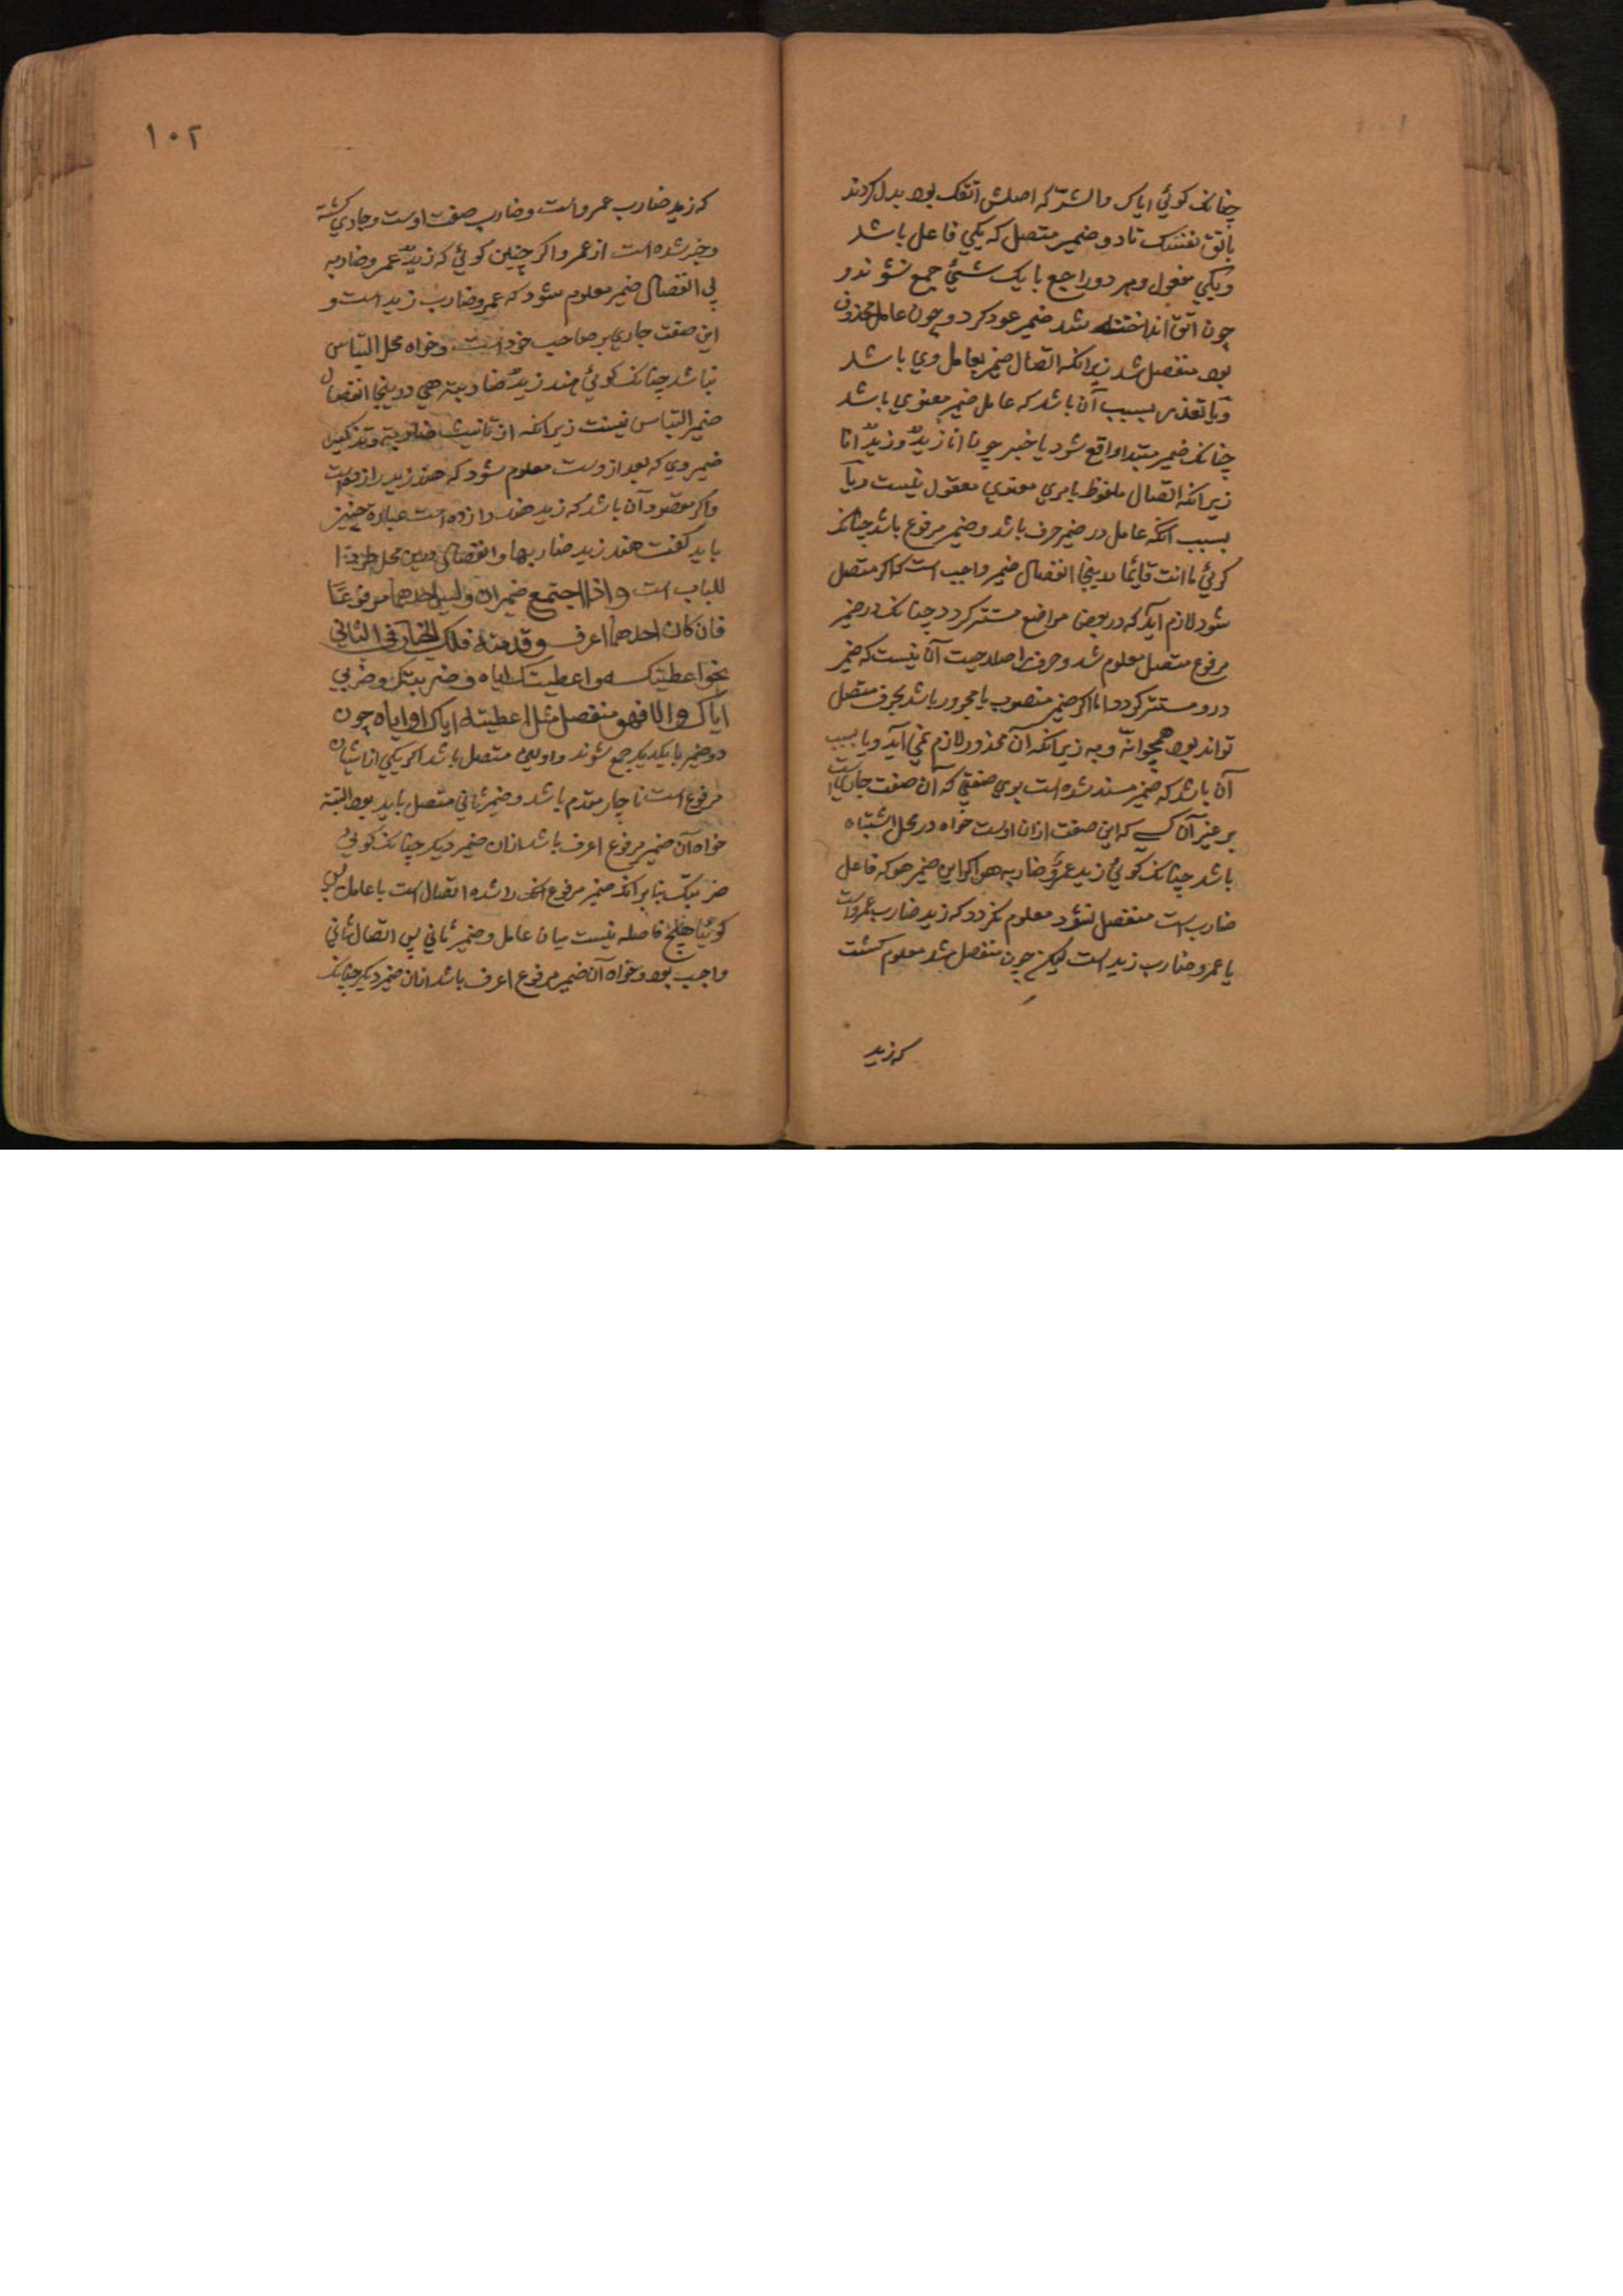 چنانک کوئی ایاک والشر که اصلش اتقک بود بدل کردند
باتق نفسک تا دو ضمیر متصل که یکی فاعل باشد
ویکی مفعول وهر دو راجع با یک شیئ جمع نشوند و
چون اتق انداخته شد ضمیر عود کرد و چون عامل محذوف
بود منفصل شد زیرانکه اتصال ضمیر بعامل وی باشد
ویا تعذر بسبب آن باشد که عامل ضمیر معنوی باشد
چنانک ضمیر مبتدا واقع شود یا خبر چون انا زیدٌ وزیدٌ انا
زیرانکه اتصال ملفوظ بامری معنوی معقول نیست ویا
بسبب انکه عامل در ضمیر حرف باشد وضمیر مرفوع باشد چنانک
کوئی ما انت قایما درینجا انفصال ضمیر واجب است که اکر متصل
شود لازم آید که در بعضی مواضع مستتر کردد چنانک در ضمیر
مرفوع متصل معلوم شد وحرف را صلاحیت آن نیست که ضمیر
درو مستتر کردد اما اکر ضمیر منصوب یا مجرور باشد بحرف متصل
تواند بود همچو انّه وبه زیرانکه آن محذور لازم نمی آید ویا بسبب
آن باشد که ضمیر مسند شده است بوی صفتی که آن صفت جاریست
بر غیر آن کسی که این صفت ازان اوست خواه در محل اشتباه
باشد چنانک کوئی زید عمرٌو ضاربه هو اکر این ضمیر هو که فاعل
ضارب است منفصل نشود معلوم نکردد که زید ضارب عمروست
یا عمرو ضارب زید است لیکن چون منفصل شد معلوم کشت
که زید
۱۰۲
که زید ضارب عمروست وضارب صفت اوست وجاری کشته
وخبر شده است از عمرو اکر چنین کوئی که زیدٌ عمرو ضاربه
بی انفصال ضمیر معلوم شود که عمرو ضارب زید است و
این صفت جاری بر صاحب خود است وخواه محل التباس
نباشد چنانک کوئی هند زیدٌ ضاربته هی درینجا انفصال
ضمیر التباس نیست زیرانکه از تانیث ضاربته وتذکیر
ضمیر وی که بعد ازوست معلوم شود که هند زید را زده است
واکر مقصود آن باشد که زید هند را زده است عبارة چنین
باید کفت هند زید ضاربها وانفصال درین محل طردا
للباب است واذا اجتمع ضمیران ولیس احدهما مرفوعًا
فان کان احدهما اعرف وقدمته فلک الخیار فی الثانی
نحو اعطیتکه واعطیتک ایاه وضربیک وضربی
ایاک والا فهو منفصل مثل اعطیته ایاک او ایاه چون
دو ضمیر با یکدیکر جمع شوند واولین متصل باشد اکر یکی ازیشان
مرفوع است ناچار مقدم باشد وضمیر ثانی متصل باید بود البته
خواه آن ضمیر مرفوع اعرف باشد ازان ضمیر دیکر چنانک کوئی
ضربتک بنا بر انکه ضمیر مرفوع را شدة اتصال است با عامل پس
کوئیا هیچ فاصله نیست میان عامل وضمیر ثانی پس اتصال ثانی
واجب بود وخواه آن ضمیر مرفوع اعرف باشد ازان ضمیر دیکر چنانک